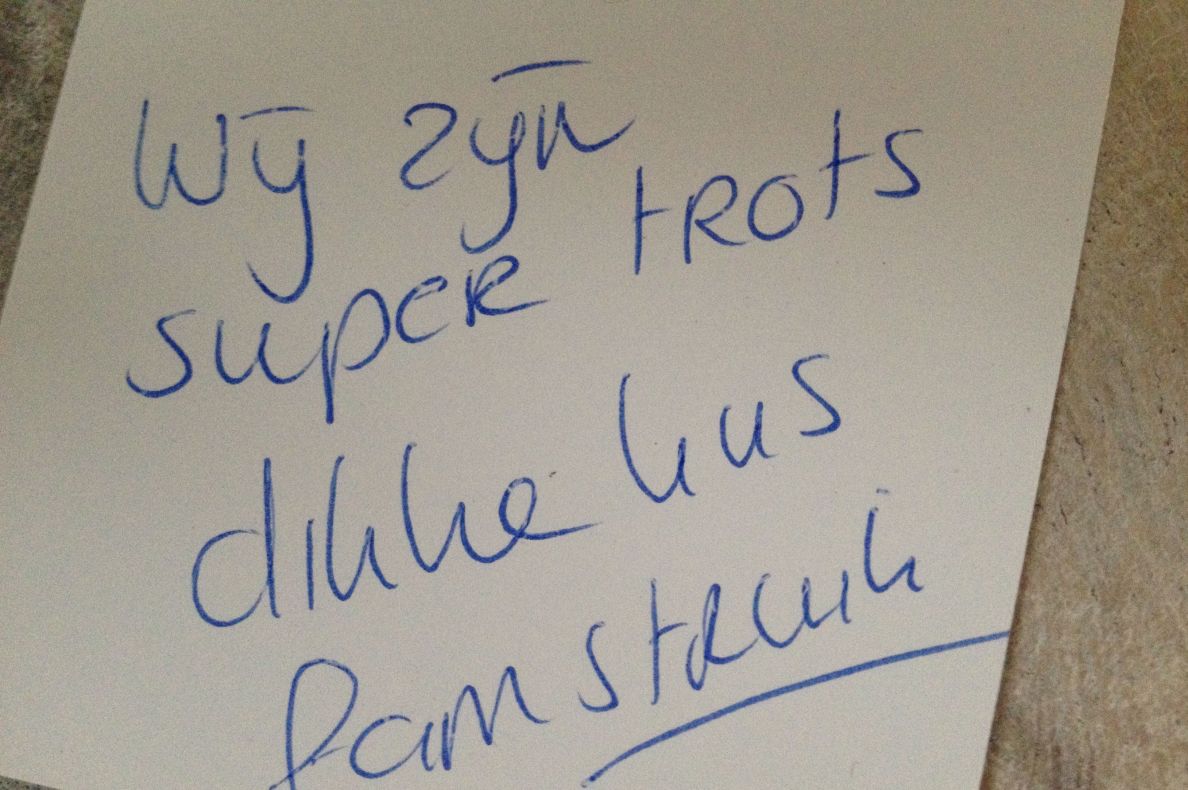 Wij zijn
super trots
dikke kus
fam Struik